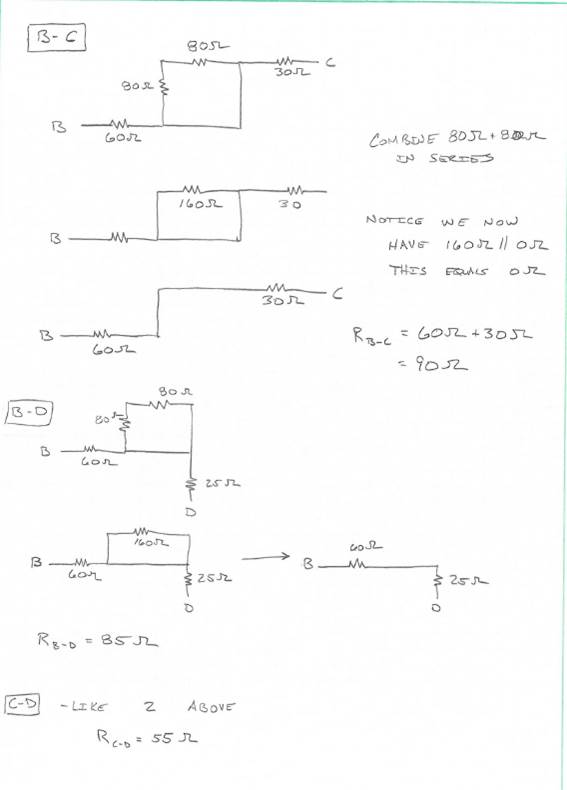 B-C
80Ω
80Ω
30Ω
C
B
60Ω
COMBINE 80Ω + 80Ω
IN SERIES
160Ω
30
B
NOTICE WE NOW
HAVE 160Ω // 0Ω
THIS EQUALS 0Ω
30Ω
C
B
60Ω
R_B-C = 60Ω + 30Ω
= 90Ω
B-D
80Ω
80Ω
B
60Ω
25Ω
D
160Ω
B
60Ω
25Ω
D
60Ω
B
25Ω
D
R_B-D = 85Ω
C-D - LIKE 2 ABOVE
R_C-D = 55Ω